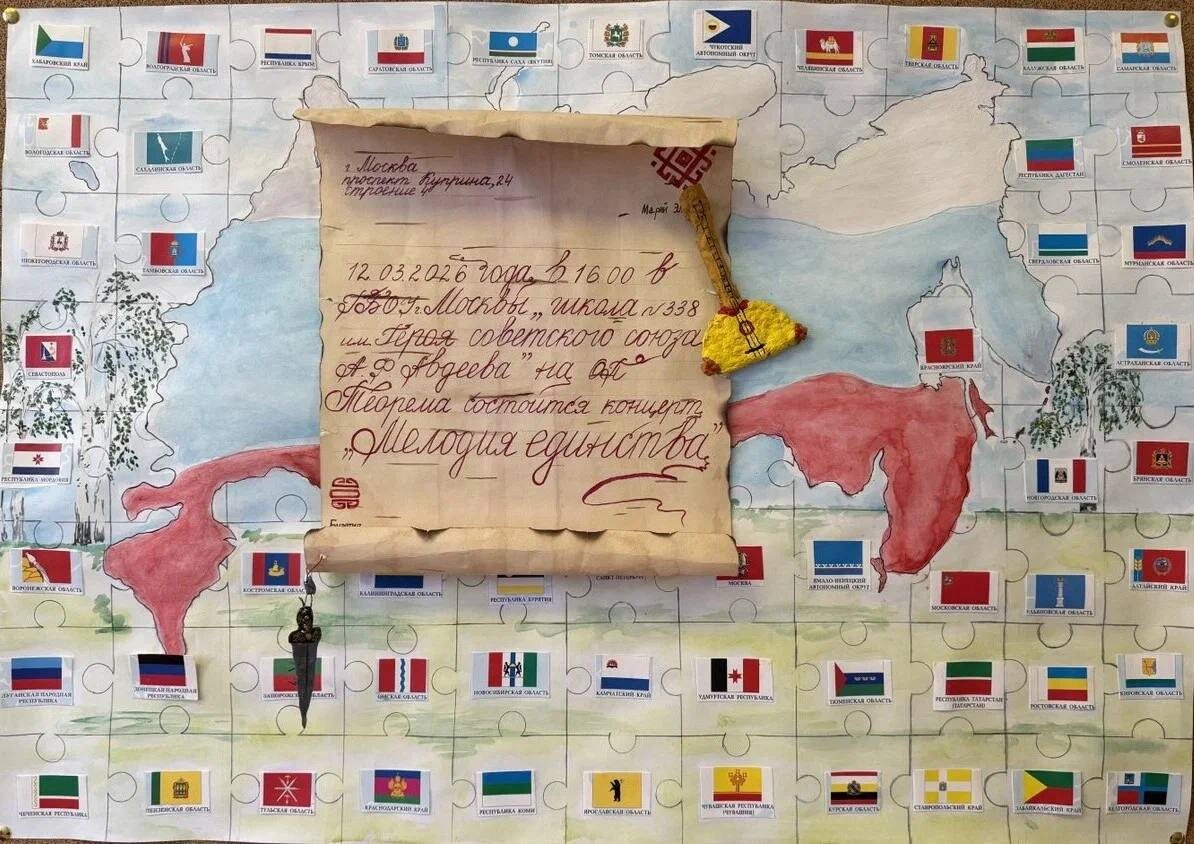 ХАБАРОВСКИЙ КРАЙ
ВОЛГОГРАДСКАЯ ОБЛАСТЬ
РЕСПУБЛИКА КРЫМ
САРАТОВСКАЯ ОБЛАСТЬ
РЕСПУБЛИКА САХА (ЯКУТИЯ)
ТОМСКАЯ ОБЛАСТЬ
ЧУКОТСКИЙ
АВТОНОМНЫЙ ОКРУГ
ЧЕЛЯБИНСКАЯ ОБЛАСТЬ
ТВЕРСКАЯ ОБЛАСТЬ
КАЛУЖСКАЯ ОБЛАСТЬ
САМАРСКАЯ ОБЛАСТЬ
ВОЛОГОДСКАЯ ОБЛАСТЬ
САХАЛИНСКАЯ ОБЛАСТЬ
РЕСПУБЛИКА ДАГЕСТАН
СМОЛЕНСКАЯ ОБЛАСТЬ
НИЖЕГОРОДСКАЯ ОБЛАСТЬ
ТАМБОВСКАЯ ОБЛАСТЬ
СВЕРДЛОВСКАЯ ОБЛАСТЬ
МУРМАНСКАЯ ОБЛАСТЬ
г Москва
проспект Куприна, 24
строение 4
Марий
12.03.2026 года в 16.00 в
ГБОУ г. Москвы „школа №338
им. Героя советского союза
А.Ф Авдеева" на
Теорема состоится концерт
„Мелодия единства"
СЕВАСТОПОЛЬ
КРАСНОЯРСКИЙ КРАЙ
АСТРАХАНСКАЯ ОБЛАСТЬ
РЕСПУБЛИКА МОРДОВИЯ
НОВГОРОДСКАЯ ОБЛАСТЬ
БРЯНСКАЯ ОБЛАСТЬ
ВОРОНЕЖСКАЯ ОБЛАСТЬ
КОСТРОМСКАЯ ОБЛАСТЬ
КАЛИНИНГРАДСКАЯ ОБЛАСТЬ
РЕСПУБЛИКА БУРЯТИЯ
САНКТ-ПЕТЕРБУРГ
МОСКВА
ЯМАЛО-НЕНЕЦКИЙ
АВТОНОМНЫЙ ОКРУГ
МОСКОВСКАЯ ОБЛАСТЬ
УЛЬЯНОВСКАЯ ОБЛАСТЬ
АЛТАЙСКИЙ КРАЙ
ЛУГАНСКАЯ НАРОДНАЯ
РЕСПУБЛИКА
ДОНЕЦКАЯ НАРОДНАЯ
РЕСПУБЛИКА
ОМСКАЯ ОБЛАСТЬ
НОВОСИБИРСКАЯ ОБЛАСТЬ
КАМЧАТСКИЙ КРАЙ
УДМУРТСКАЯ РЕСПУБЛИКА
ТЮМЕНСКАЯ ОБЛАСТЬ
РЕСПУБЛИКА ТАТАРСТАН
(ТАТАРСТАН)
РОСТОВСКАЯ ОБЛАСТЬ
КИРОВСКАЯ ОБЛАСТЬ
ЧЕЧЕНСКАЯ РЕСПУБЛИКА
ПЕНЗЕНСКАЯ ОБЛАСТЬ
ТУЛЬСКАЯ ОБЛАСТЬ
КРАСНОДАРСКИЙ КРАЙ
РЕСПУБЛИКА КОМИ
ЯРОСЛАВСКАЯ ОБЛАСТЬ
ЧУВАШСКАЯ РЕСПУБЛИКА
(ЧУВАШИЯ)
КУРСКАЯ ОБЛАСТЬ
СТАВРОПОЛЬСКИЙ КРАЙ
ЗАБАЙКАЛЬСКИЙ КРАЙ
БЕЛГОРОДСКАЯ ОБЛАСТЬ